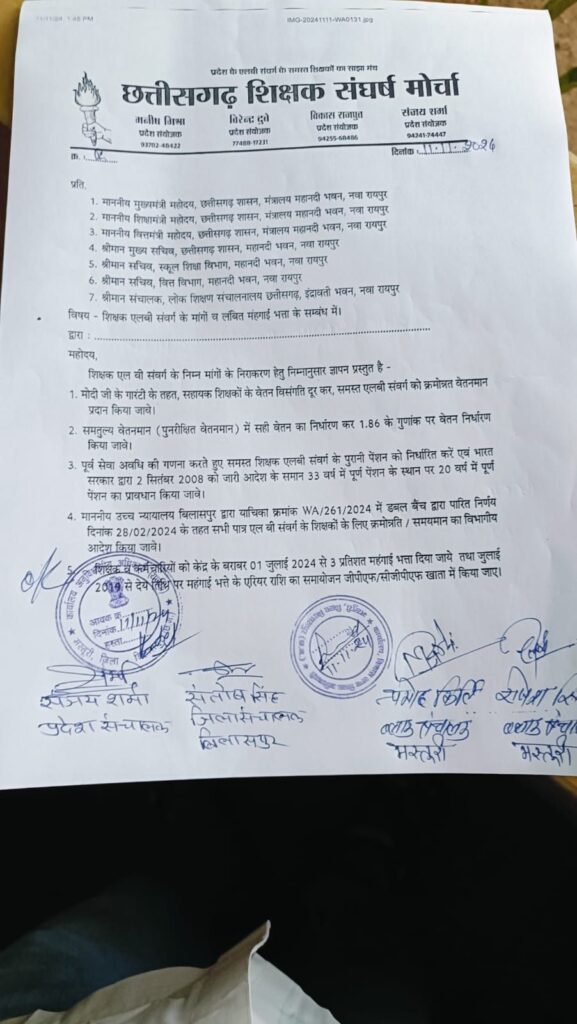 11/11/24, 1:45 PM
IMG-20241111-WA0131.jpg
प्रदेश के एलबी संवर्ग के समस्त शिक्षकों का साझा मंच
छत्तीसगढ़ शिक्षक संघर्ष मोर्चा
मनीष मिश्रा विरेन्द्र दुबे विकास राजपूत संजय शर्मा
प्रदेश संयोजक प्रदेश संयोजक प्रदेश संयोजक प्रदेश संयोजक
93702-48422 77488-17231 94255-68486 94241-74447
क्र. :
दिनांक : 11.11.2024
प्रति,
1. माननीय मुख्यमंत्री महोदय, छत्तीसगढ़ शासन, मंत्रालय महानदी भवन, नवा रायपुर
2. माननीय शिक्षामंत्री महोदय, छत्तीसगढ़ शासन, मंत्रालय महानदी भवन, नवा रायपुर
3. माननीय वित्तमंत्री महोदय, छत्तीसगढ़ शासन, मंत्रालय महानदी भवन, नवा रायपुर
4. श्रीमान मुख्य सचिव, छत्तीसगढ़ शासन, महानदी भवन, नवा रायपुर
5. श्रीमान सचिव, स्कूल शिक्षा विभाग, महानदी भवन, नवा रायपुर
6. श्रीमान सचिव, वित्त विभाग, महानदी भवन, नवा रायपुर
7. श्रीमान संचालक, लोक शिक्षण संचालनालय छत्तीसगढ़, इंद्रावती भवन, नवा रायपुर
विषय - शिक्षक एलबी संवर्ग के मांगों व लंबित मंहगाई भत्ता के सम्बंध में।
द्वारा :
महोदय,
शिक्षक एल बी संवर्ग के निम्न मांगों के निराकरण हेतु निम्नानुसार ज्ञापन प्रस्तुत है -
1. मोदी जी के गारंटी के तहत, सहायक शिक्षकों के वेतन विसंगति दूर कर, समस्त एलबी संवर्ग को क्रमोन्नत वेतनमान
प्रदान किया जावे।
2. समतुल्य वेतनमान (पुनरीक्षित वेतनमान) में सही वेतन का निर्धारण कर 1.86 के गुणांक पर वेतन निर्धारण
किया जावे।
3. पूर्व सेवा अवधि की गणना करते हुए समस्त शिक्षक एलबी संवर्ग के पुरानी पेंशन को निर्धारित करें एवं भारत
सरकार द्वारा 2 सितंबर 2008 को जारी आदेश के समान 33 वर्ष में पूर्ण पेंशन के स्थान पर 20 वर्ष में पूर्ण
पेंशन का प्रावधान किया जावे।
4. माननीय उच्च न्यायालय बिलासपुर द्वारा याचिका क्रमांक WA/261/2024 में डबल बैंच द्वारा पारित निर्णय
दिनांक 28/02/2024 के तहत सभी पात्र एल बी संवर्ग के शिक्षकों के लिए क्रमोन्नति / समयमान का विभागीय
आदेश किया जावे।
5. शिक्षक व कर्मचारियों को केंद्र के बराबर 01 जुलाई 2024 से 3 प्रतिशत महंगाई भत्ता दिया जाये तथा जुलाई
2019 से देय तिथि पर महंगाई भत्ते के एरियर राशि का समायोजन जीपीएफ/सीजीपीएफ खाता में किया जाए।
कार्यालय अनुविभागीय अधिकारी
आवक क्र.
दिनांक
हस्ता.
मस्तुरी, जिला
11-11-24
संजय शर्मा संतोष सिंह
प्रदेश संचालक जिला संचालक ब्लाक संचालक ब्लाक संचालक
बिलासपुर मस्तुरी मस्तुरी